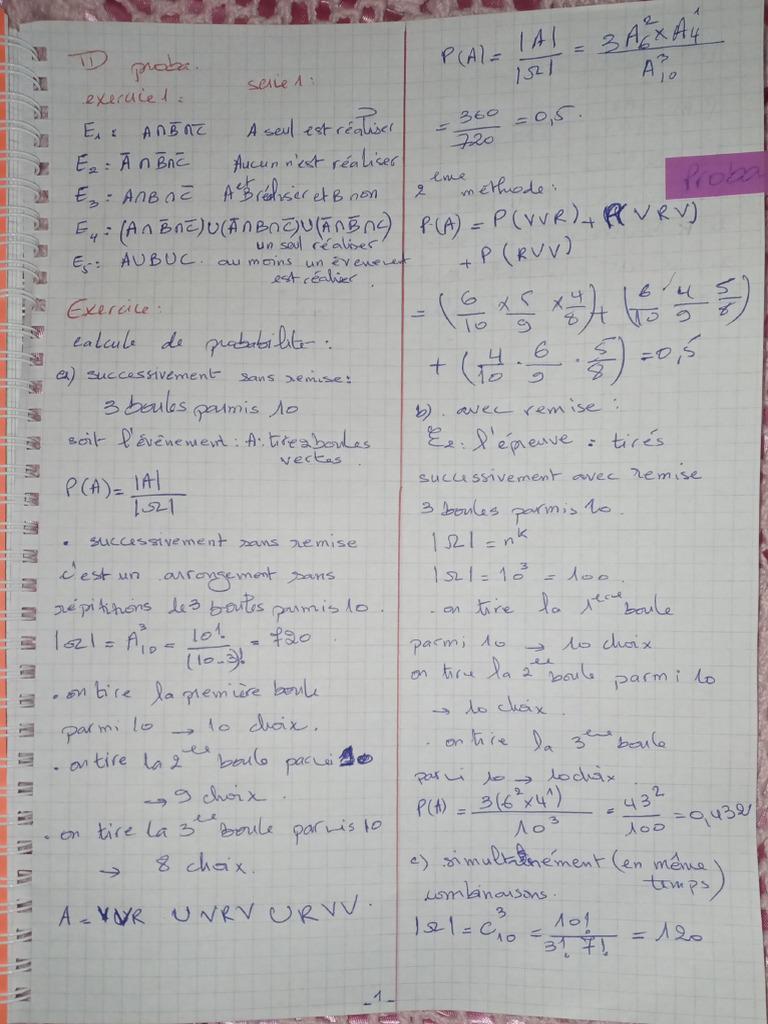 TD proba.
serie 1:
exercice 1:
E1: A∩B̅∩C̅ A seul est réaliser
E2: A̅∩B̅∩C̅ Aucun n'est réaliser
E3: A∩B∩C̅ A et B réaliser et B non
E4: (A∩B̅∩C̅)∪(A̅∩B∩C̅)∪(A̅∩B̅∩C)
un seul réaliser
E5: A∪B∪C. au moins un évenement
est réalier.
Exercice:
calcule de probabilité:
a) successivement sans remise:
3 boules parmis 10
soit l'évènement: A: tirer 2 boules
vertes.
P(A) = |A| / |Ω|
• successivement sans remise
c'est un arrangement sans
répititions de 3 boules parmis 10.
|Ω| = A³₁₀ = 10! / (10-3)! = 720
• on tire la première boule
parmi 10 → 10 choix.
• on tire la 2ee boule parmi 10
→ 9 choix.
• on tire la 3ee boule parmis 10
→ 8 choix.
A = VVR ∪ VRV ∪ RVV.
P(A) = |A| / |Ω| = 3A²₆ × A¹₄ / A³₁₀
= 360 / 720 = 0,5.
Proba
2eme méthode:
P(A) = P(VVR) + P(VRV)
+ P(RVV)
= (6/10 × 5/9 × 4/8) + (6/10 4/9 5/8)
+ (4/10 . 6/9 . 5/8) = 0,5
b). avec remise:
E2: l'épreuve: tirés
successivement avec remise
3 boules parmis 10.
|Ω| = nᵏ
|Ω| = 10³ = 100.
. on tire la 1ere boule
parmi 10 → 10 choix
on tire la 2ee boule parmi 10
→ 10 choix.
. on tire la 3eme boule
parmi 10 → 10 choix
P(A) = 3(6² × 4¹) / 10³ = 432 / 100 = 0,432
c) simultanément (en même
temps)
combinaisons.
|Ω| = C³₁₀ = 10! / 3! 7! = 120
-1-